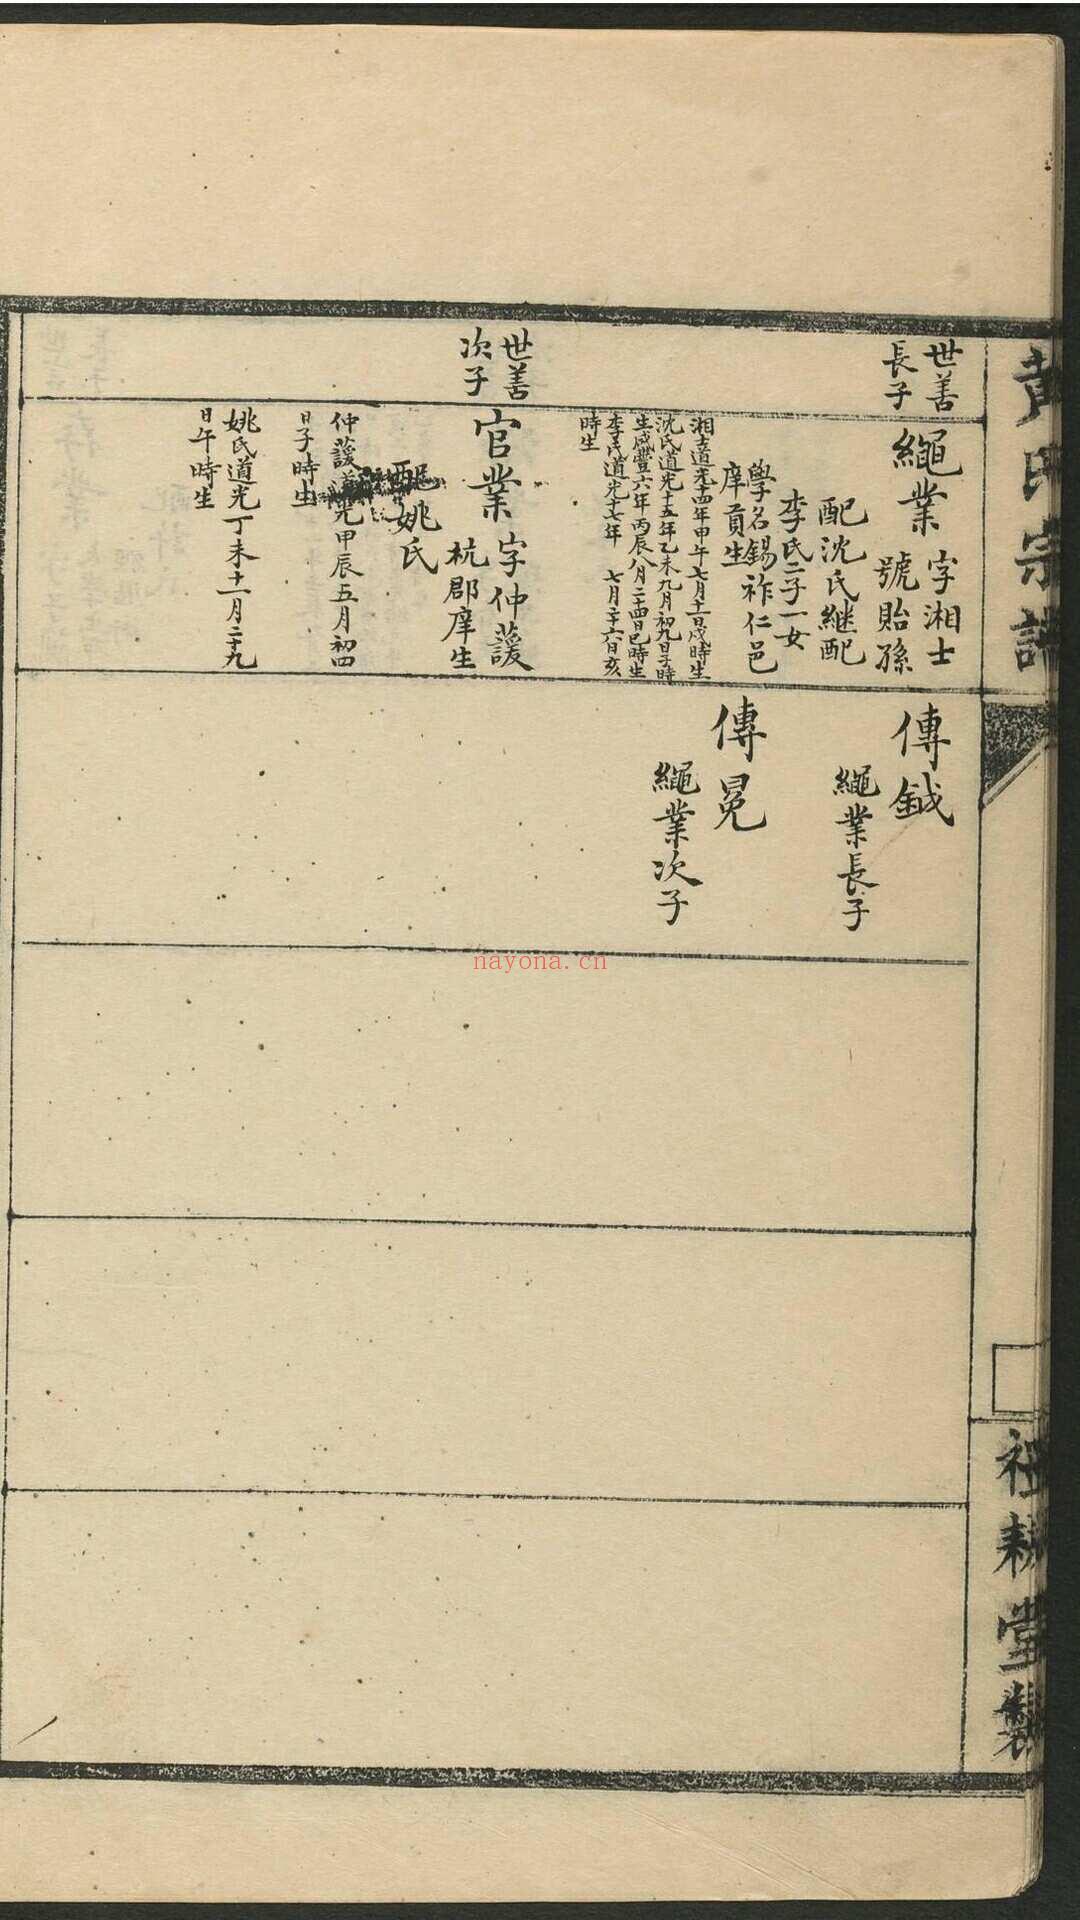 黃氏宗譜
祖耕堂製
世善
長子
繩業
字湘士
號貽孫
配沈氏繼配
李氏二子一女
學名錫祚仁邑
庠貢生
湘士道光十四年甲午七月十一日戌時生
沈氏道光十五年乙未九月初九日子時
生咸豐六年丙辰八月二十四日巳時生
李氏道光十七年 七月二十六日亥
時生
世善
次子
官業
字仲護
杭郡庠生
配姚氏
仲護道光甲辰五月初四
日子時生
姚氏道光丁未十一月二十九
日午時生
傳鉞
繩業長子
傳冕
繩業次子
nayona.cn